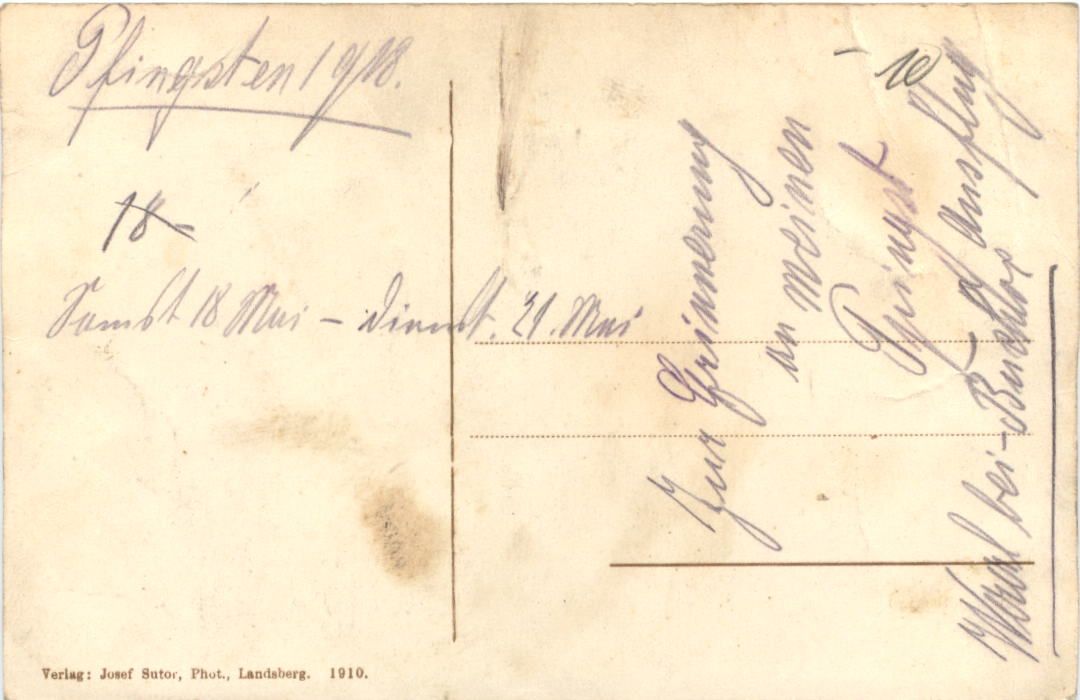 Pfingsten 1918.
18-
Samst 18 Mai – Dienst. 21. Mai
Zur Erinnerung
an meinen
Pfingst
Ausflug
bei Buchloe
- 10
Verlag: Josef Sutor, Phot., Landsberg. 1910.